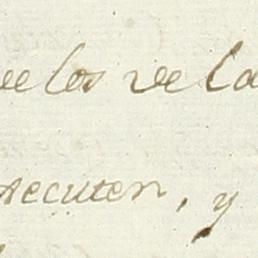 de los de la
executen, y